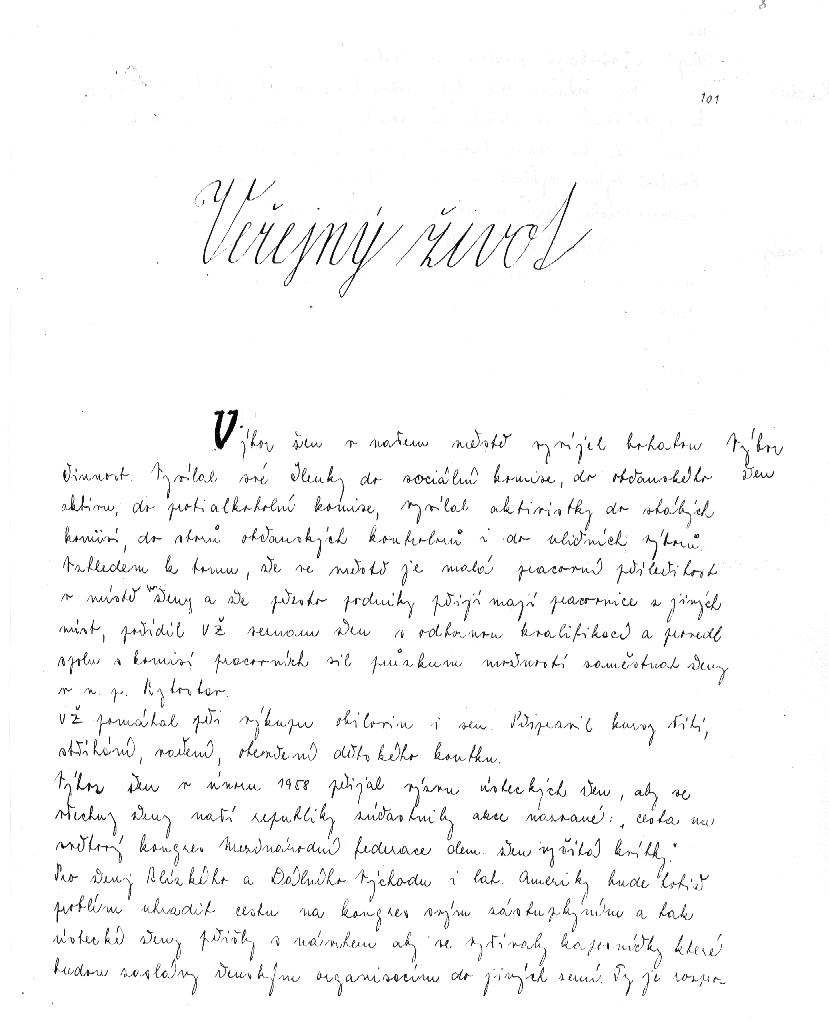 8
101
Veřejný život
Výbor žen v našem městě vyvíjel bohatou
Výbor
žen
činnost. Vysílal své členky do sociální komise, do občanského
aktivu, do protialkoholní komise, vysílal aktivistky do stálých
komisí, do sborů občanských kontrolorů i do uličních výborů.
Vzhledem k tomu, že ve městě je malá pracovní příležitost
v místě pro ženy a že přesto podniky přijímají pracovnice z jiných
míst, pořídil VŽ seznam žen s odbornou kvalifikací a provedl
spolu s komisí pracovních sil průzkum možností zaměstnat ženy
v n. p.
VŽ pomáhal při výkupu obilovin i sena. Připravil kursy šití,
stříhání, vaření, otevření dětského koutku.
Výbor žen v únoru 1958 přijal výzvu ústeckých žen, aby se
všechny ženy naší republiky zúčastnily akce nazvané: „Cesta na
světový kongres Mezinárodní federace dem. žen vyšitá křížky."
Pro ženy Blízkého a Dálného Východu i lat. Ameriky bude totiž
problém uhradit cestu na kongres svým zástupkyním a tak
ústecké ženy přišly s návrhem aby se vyšívaly kapesníčky které
budou zaslány ženským organisacím do jiných zemí. Ty je rozpro-